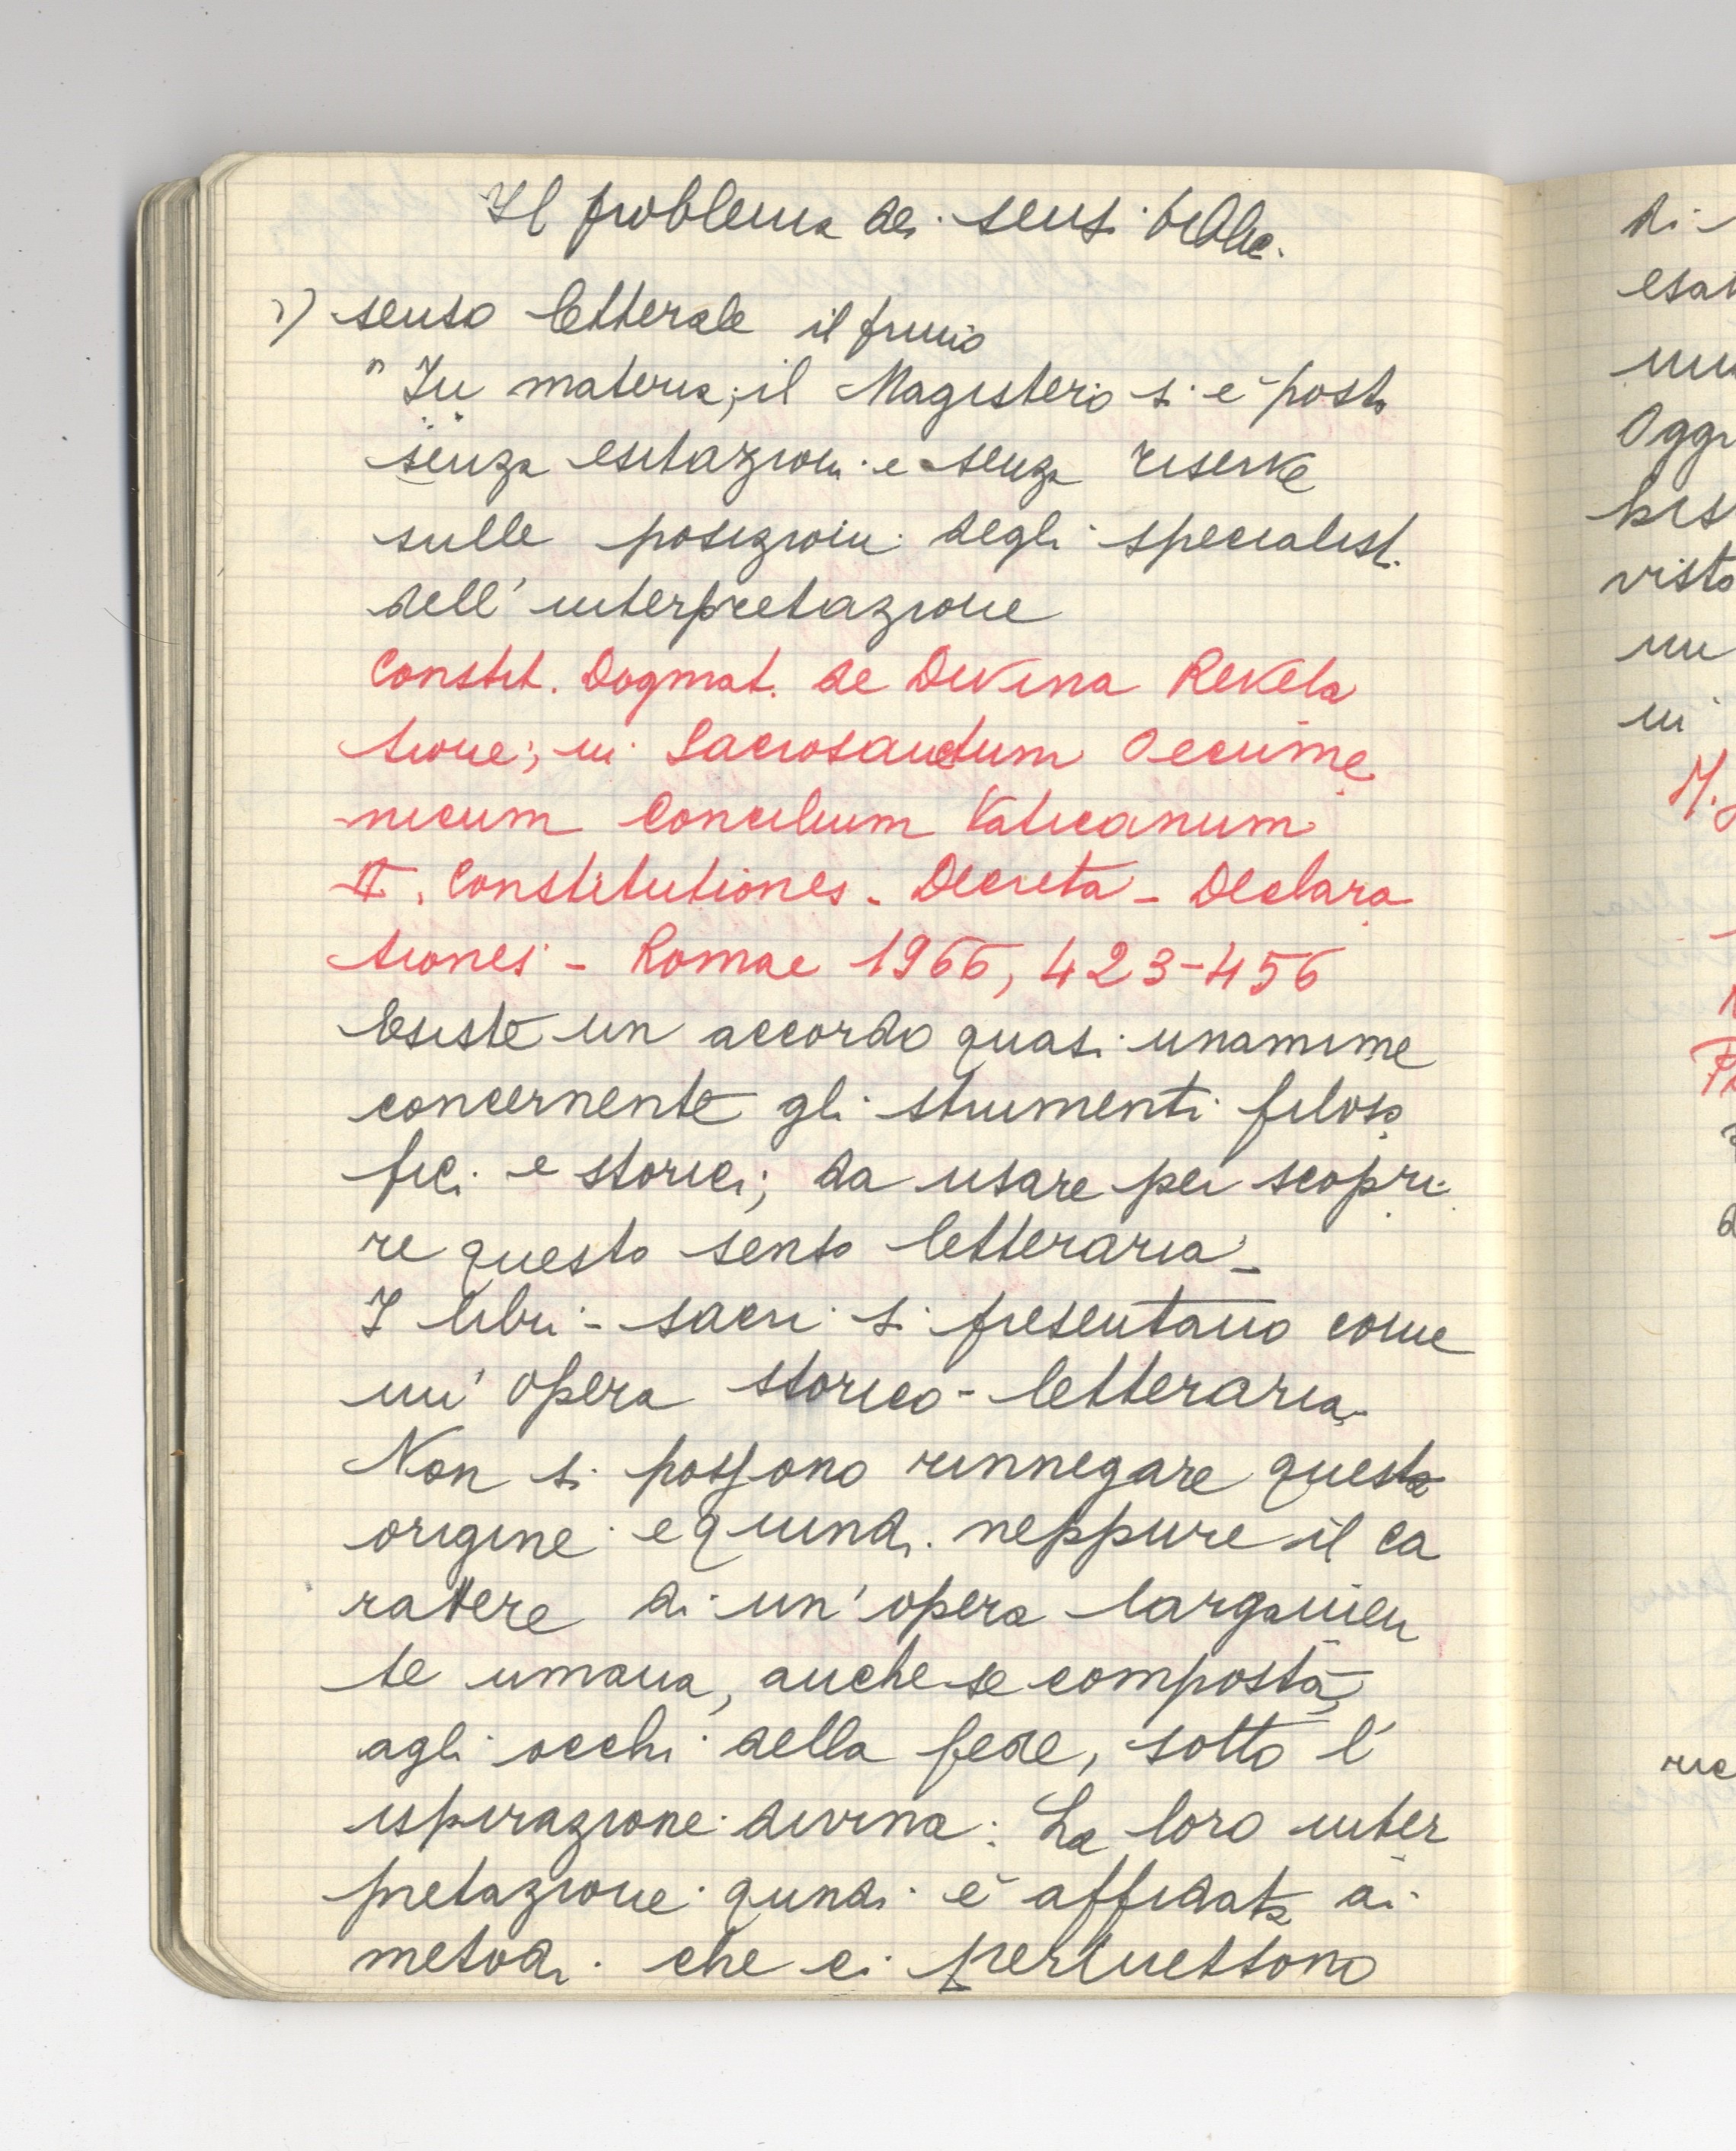 Il problema dei sensi biblici
1) senso letterale il primo
"In materia, il Magistero si è posto
senza esitazioni e senza riserve
sulle posizioni degli specialisti
dell'interpretazione
Constit. Dogmat. de Divina Revela
tione; in Sacrosanctum Oecume
nicum Concilium Vaticanum
II. Constitutiones - Decreta - Declara
tiones - Romae 1966, 423-456
Esiste un accordo quasi unamime
concernente gli strumenti filoso
fici e storici; da usare per scopri
re questo senso letteraria -
I libri - sacri si presentano come
un' opera storico - letteraria.
Non si possono rinnegare questa
origine e quindi neppure il ca
rattere di un' opera largamen
te umana, anche se composta,
agli occhi della fede, sotto l'
ispirazione divina: La loro inter
pretazione qundi è affidata ai
metodi che ci permettono
di
esa
Oggi
bis
visto
in
M.